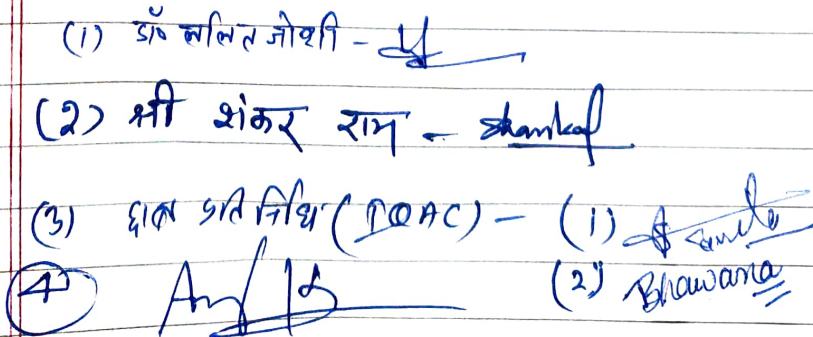 (1) डॉ० ललित जोशी -
(2) श्री शंकर राम - Shankar
(3) छात्र प्रतिनिधि (IQAC) - (1)
(4) (2) Bhawana